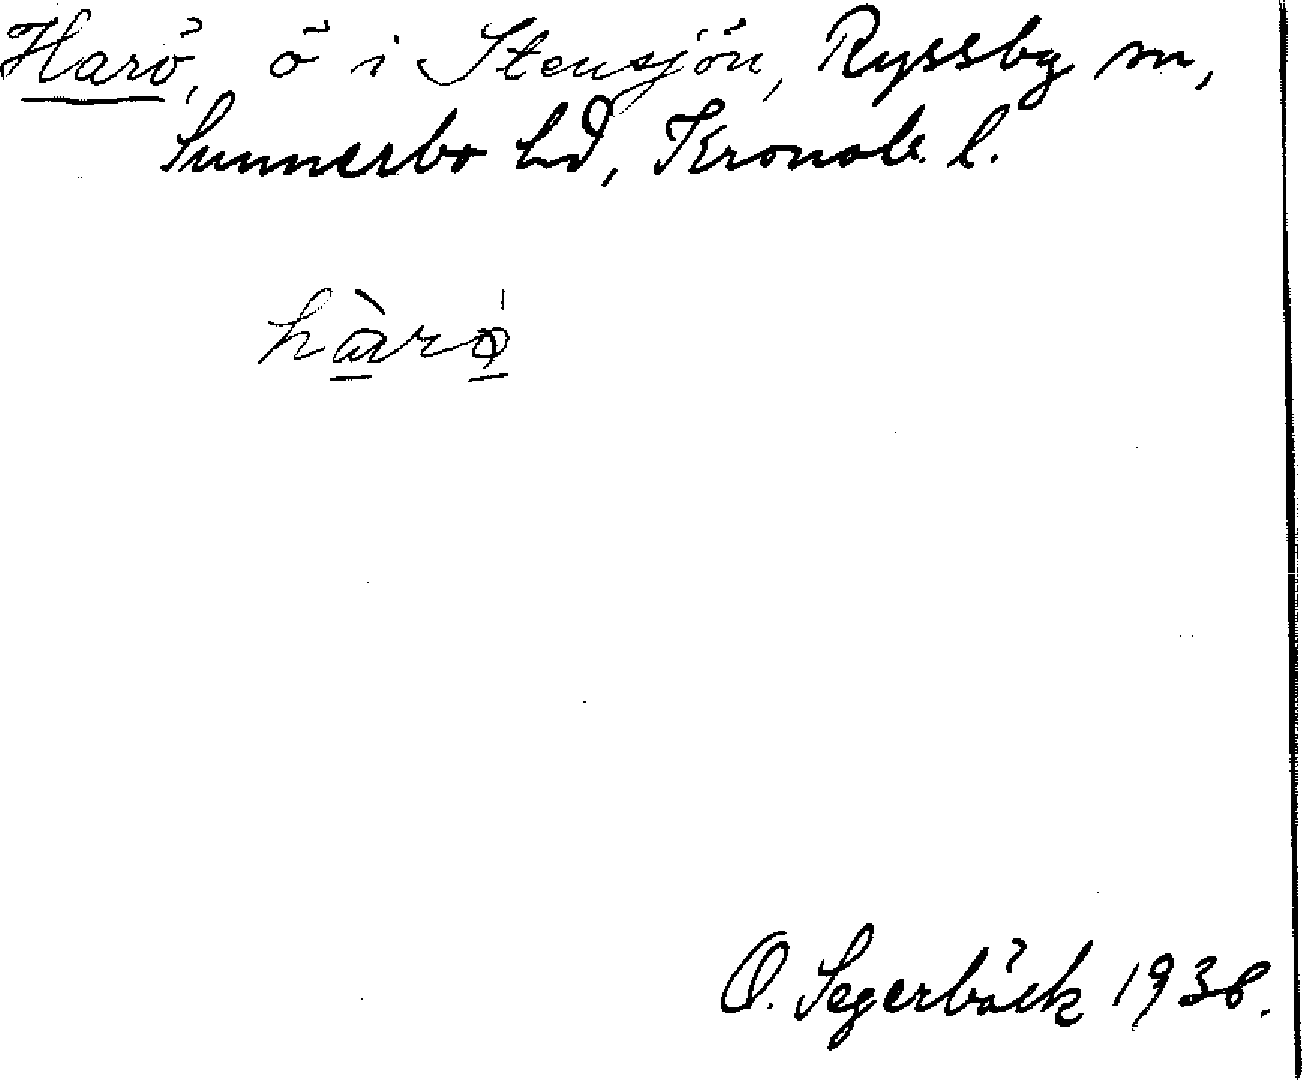 Harö, ö i Stensjön, Ryssby sn,
Sunnerbo hd, Kronob. l.
hàrǿ
O. Segerbäck 1938.